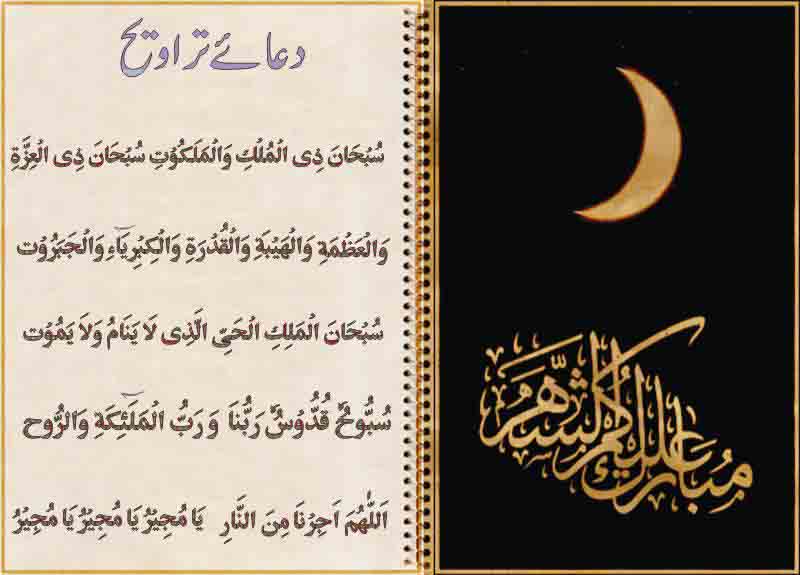 دعائے تراویح
سُبْحَانَ ذِی الْمُلْكِ وَالْمَلَكُوْتِ سُبْحَانَ ذِی الْعِزَّةِ
وَالْعَظْمَةِ وَالْهَيْبَةِ وَالْقُدْرَةِ وَالْكِبْرِيَآءِ وَالْجَبَرُوْت
سُبْحَانَ الْمَلِكِ الْحَیِّ الَّذِی لَا يَنَامُ وَلَا يَمُوْت
سُبُّوحٌ قُدُّوْسٌ رَبُّنَا وَرَبُّ الْمَلٰٓئِكَةِ وَالرُّوح
اَللّٰهُمَ اَجِرْنَا مِنَ النَّارِ يَا مُجِيْرُ يَا مُجِيْرُ يَا مُجِيْرُ
مُبَارَك عليكم الشَّهر